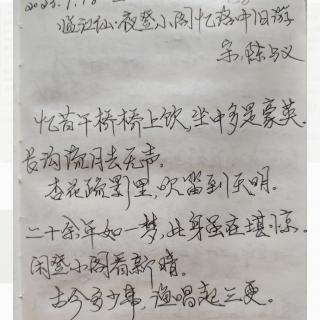 临江仙·夜登小阁忆洛中旧游
宋,陈与义
忆昔午桥桥上饮,坐中多是豪英.
长沟流月去无声.
杏花疏影里,吹笛到天明.
二十余年如一梦,此身虽在堪惊.
闲登小阁看新晴.
古今多少事,渔唱起三更。